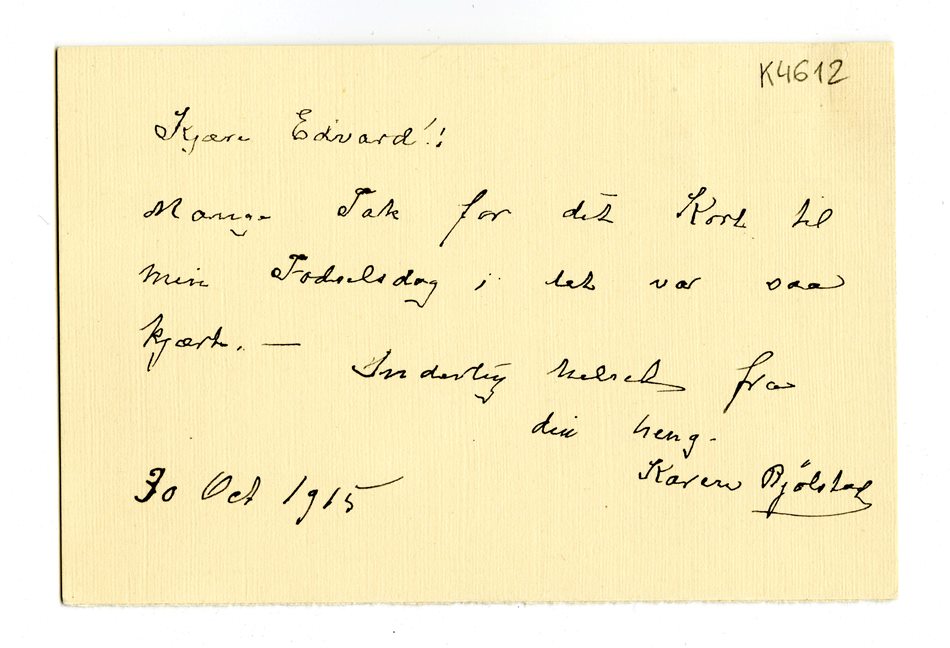 K4612
Kjære Edvard!!
Mange Tak for det Kort til
min Fodselsdag; det var saa
kjært. —
Inderlig helset fra
din heng.
Karen Bjölstad
30 Oct 1915